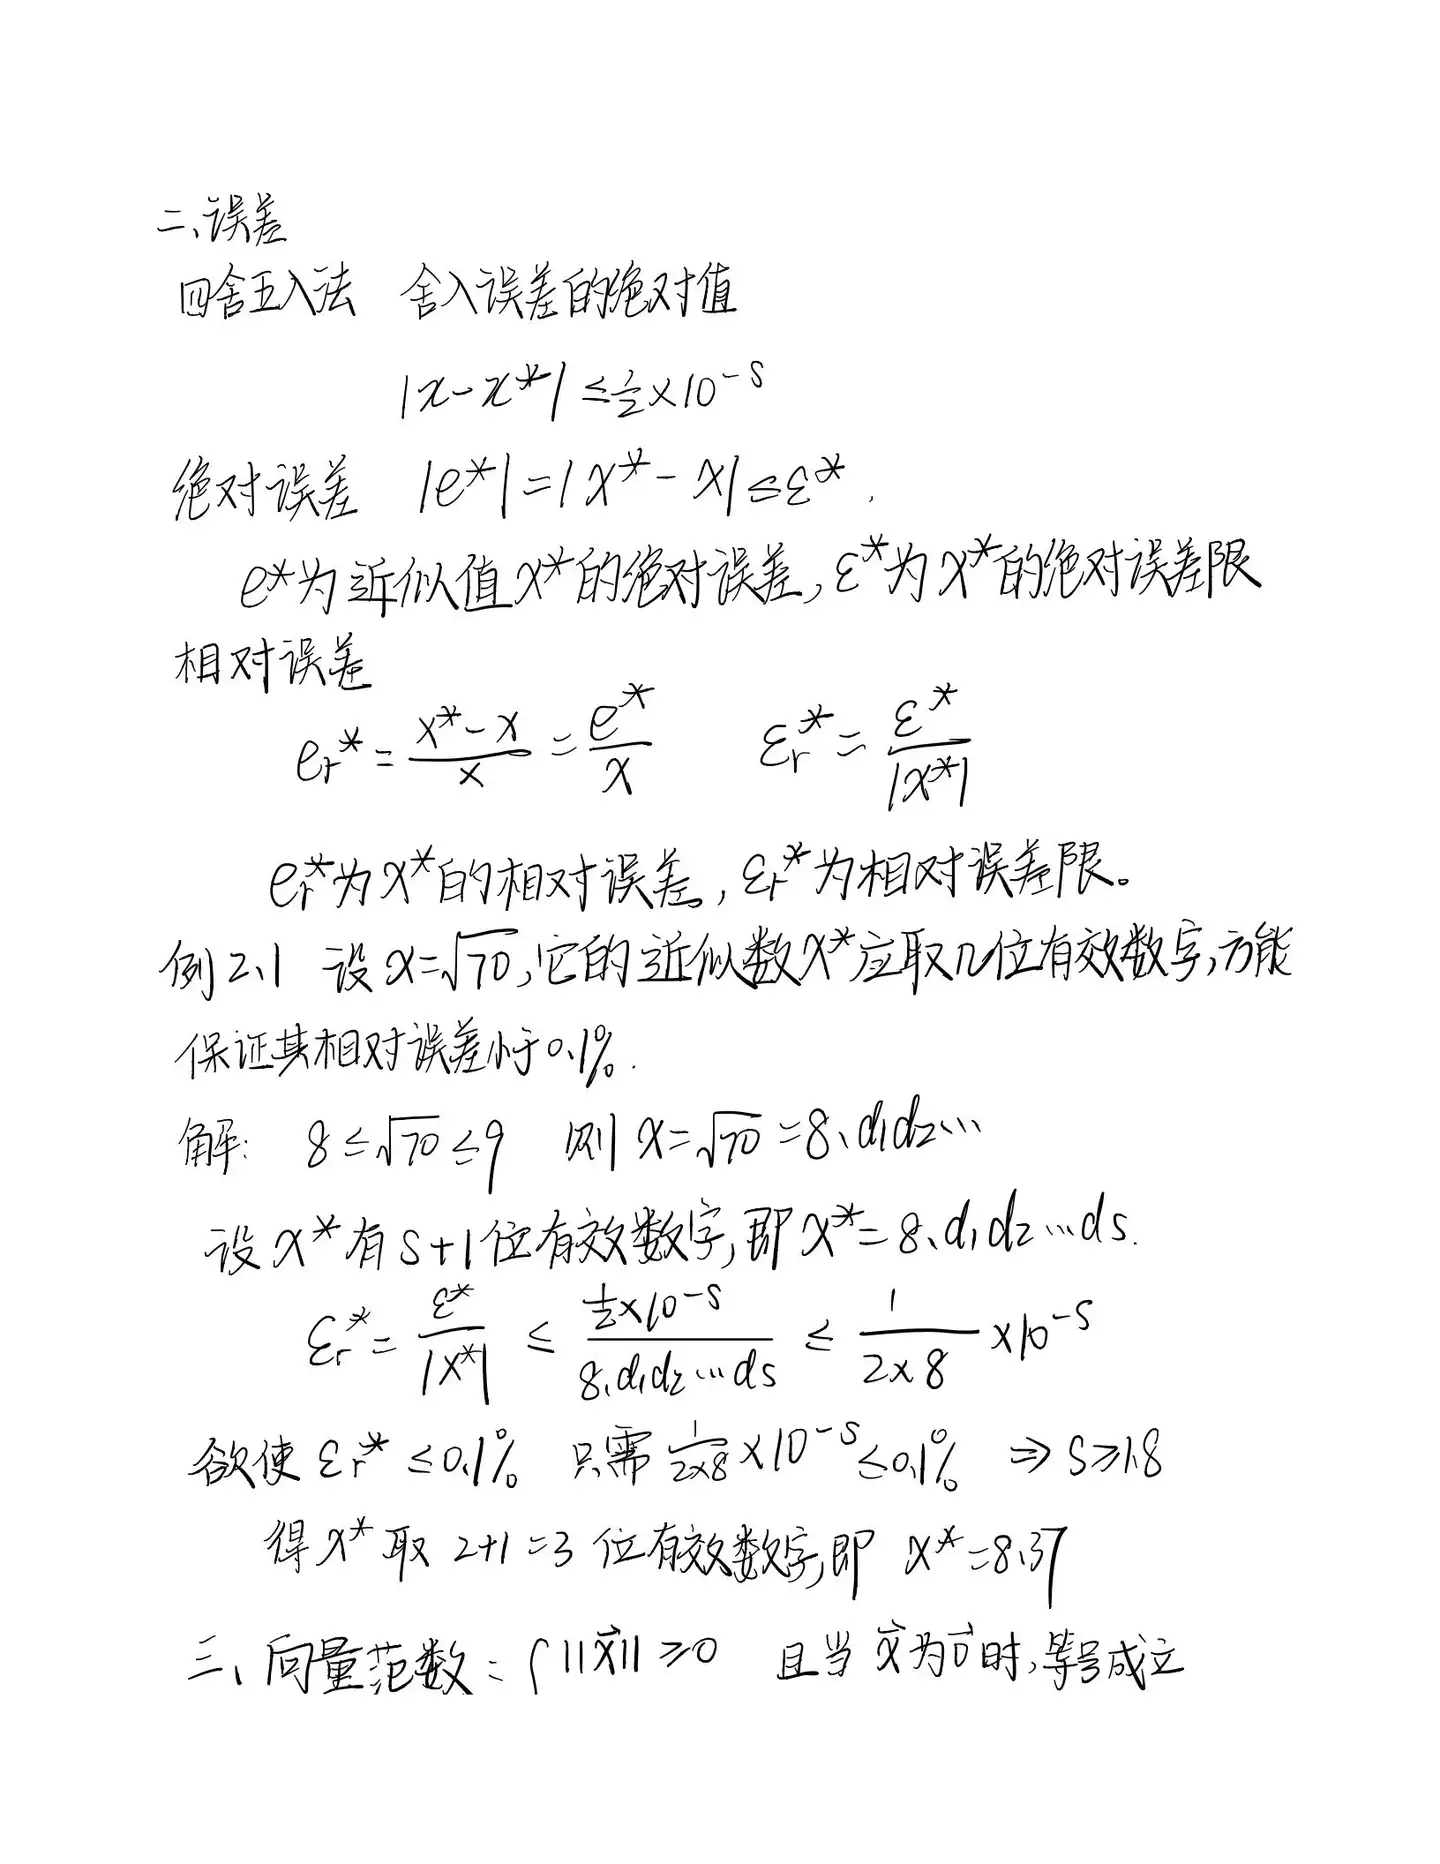 二、误差
四舍五入法 舍入误差的绝对值
|x-x*| ≤ 1/2×10^-s
绝对误差 |e*|=|x*-x|≤ε*.
e*为近似值x*的绝对误差,ε*为x*的绝对误差限
相对误差
e_r*=(x*-x)/x=e*/x ε_r*=ε*/|x*|
e_r*为x*的相对误差,ε_r*为相对误差限。
例2.1 设x=√70,它的近似数x*应取几位有效数字,方能
保证其相对误差小于0.1%.
解: 8≤√70≤9 则x=√70=8.d₁d₂…
设x*有s+1位有效数字,即x*=8.d₁d₂…ds.
ε_r*=ε*/|x*| ≤ (1/2×10^-s)/(8.d₁d₂…ds) ≤ 1/(2×8) ×10^-s
欲使ε_r*≤0.1% 只需 1/(2×8)×10^-s≤0.1% ⇒ s≥1.8
得x*取2+1=3位有效数字,即 x*=8.37
三、向量范数:{||x⃗||≥0 且当x⃗为0⃗时,等号成立